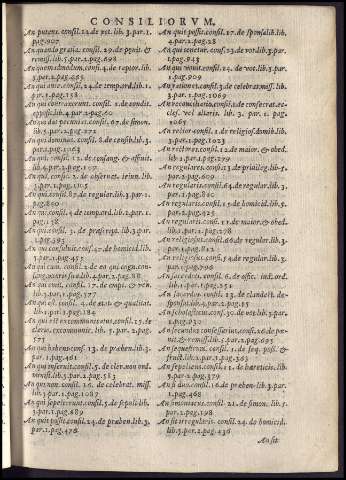 CONSILIORVM.
An putens. consil. 14. de vot. lib. 3. par. 1.
pag. 907
An quando gratia. consil. 29. de pænit. &
remiss. lib. 5. par. 2. pag. 698
An quemadmodum. consil. 4. de raptor. lib.
An qui ante. consil. 24. de temp. ord. lib. 1.
par. 1. pag. 158
An qui contraxerunt. consil. 1. de condit.
apposit. lib. 4. par. 2. pag. 60
An qui dat pecuniã. consil. 67. de simon.
lib. 5. par. 2. pag. 272
An qui dominus. consil. 8. de consib. lib. 3.
An qui. consil. 12. de consang. & affinit.
An qui. consil. 2. de obseruat. ieiun. lib.
3. par. 1. pag. 1105
An qui. consil. 89. de regular. lib. 3. par. 1.
pag. 890
An qui. consil. 4. de temp. ord. lib. 1. par. 1.
pag. 138
An qui. consil. 3. de præscript. lib. 3. par.
1. pag. 595
An qui consuluit. consil. 47. de homicid. lib.
5. par. 1. pag. 455
An qui cum. consil. 2. de eo qui cogn. con-
An qui. consil. 17. de empt. & ven.
lib. 3. par. 1. pag. 577
An qui est. consil. 4. de ætat. & qualitat.
lib. 1. par. 1. pag. 184
An qui est excommunicatus. consil. 15. de
cleric. excommunic. lib. 5. par. 2. pag.
575
An qui habens. consil. 13. de præben. lib. 3.
par. 1. pag. 461
An qui inseruit. consil. 5. de cler. non ord.
minist. lib. 5. par. 2. pag. 583
An qui non. consil. 16. de celebrat. miss.
lib. 3. par. 1. pag. 1087
An qui sepelierunt. consil. 5. de sepult. lib.
3. par. 1. pag. 689
An quit possit. consil. 24. de præben. lib. 3.
par. 1. pag. 476
An quit possit. consil. 17. de sponsalib. lib.
4. par. 2. pag. 28
An qui tenetur. consil. 23. de vot. lib. 3. par.
1. pag. 943
An qui vouit. consil. 25. de vot. lib. 3. par.
1. pag. 909
An ratione. consil. 3. de celebrat. miss. lib.
3. par. 1. pag. 1069
An reconciliatio. consil. 1. de consecrat. ec-
clesi. vel altaris. lib. 3. par. 1. pag.
1065
An rector. consil. 1. de religios. domib. lib.
3. par. 1. pag. 1023
An rectores. consil. 12. de maior. & obed.
lib. 1. par. 1. pag. 279
An regulares. consil. 23. de priuileg. lib. 5.
par. 2. pag. 609
An regulares. consil. 64. de regular. lib. 3.
par. 1. pag. 860
An regularis. consil. 15. de homicid. lib.
5. par. 2. pag. 425
An regularis. consil. 11. de maior. & obed.
lib. 1. par. 1. pag. 278
An religiosus. consil. 66. de regular. lib. 3.
par. 1. pag. 812
An religiosus. consil. 54. de regular. lib. 3.
par. 1. pag. 796
An sacerdos. consil. 6. de offic. iud. ord.
lib. 1. par. 1. pag. 351
An sacerdos. consil. 13. de clandest. de-
sponsat. lib. 4. par. 2. pag. 55
An scholasticus. consil. 30. de vot. lib. 3. par.
An secundus confessarius. consil. 26. de pœ-
nit. & remiss. lib. 5. par. 2. pag. 695
An sequestrans. consil. 1. de seq. poss. &
fruct. lib. 2. par. 1. pag. 363
An sepeliens. consil. 11. de hæreticis. lib.
5. par. 2. pag. 379
An si duo. consil. 16. de præben. lib. 3. par.
1. pag. 468
An simoniacus. consil. 21. de simon. lib. 5.
par. 2. pag. 198
An sit irregularis. consil. 24. de homicid.
lib. 5. par. 2. pag. 436
An sit